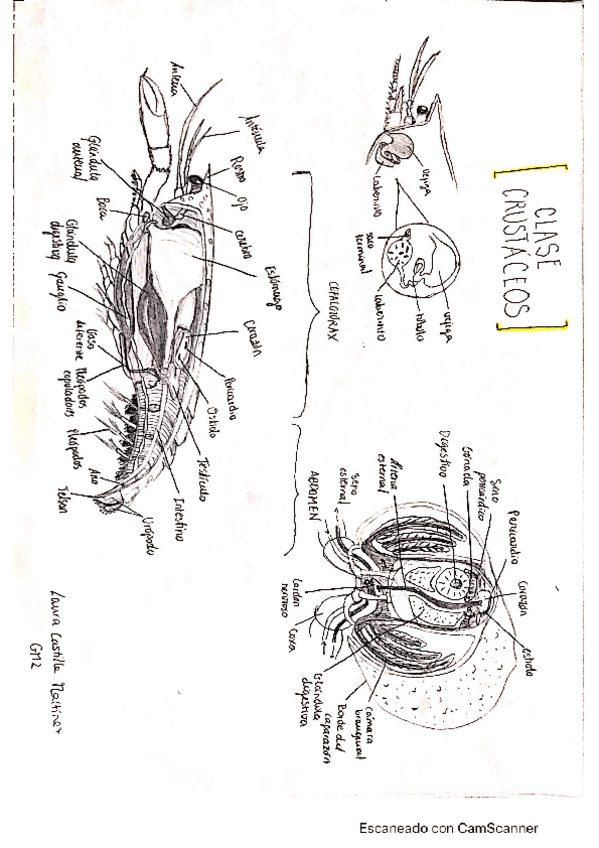 CLASE
CRUSTÁCEOS
vejiga
laberinto
saco
terminal
laberinto
túbulo
vejiga
CEFALOTÓRAX
ABDOMEN
Antena
Anténula
Rostro
Ojo
cerebro
Estómago
Corazón
Pericardio
Ostiolo
Testículo
Intestino
Urópodo
Telson
Ano
Pleópodos
Pleópodos
copuladores
Vaso
deferente
Ganglio
Glándula
digestiva
Boca
Glándula
antenal
Seno
pericárdico
Pericardio
Corazón
ostiolo
Gónada
Digestivo
Arteria
esternal
Seno
esternal
Cordón
nervioso
Coxa
Glándula
digestiva
Borde del
caparazón
cámara
branquial
Laura Castilla Martínez
GM2
Escaneado con CamScanner